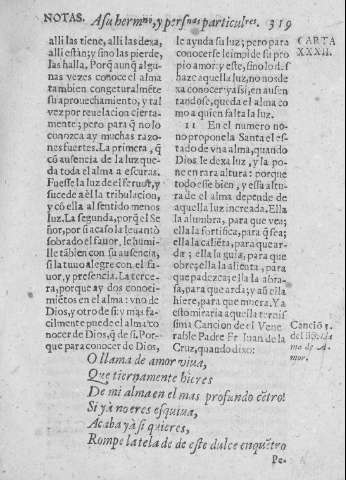 NOTAS. A su hermno, y persnas particulres. 319
alli las tiene, alli las dexa,
alli estàn; y sino las pierde,
las halla. Porq̃ aunq̃ algu-
nas vezes conoce el alma
tambien congeturalmẽte
su aprouechamiento, y tal
vez por reuelacion cierta-
mente; pero para q̃ no lo
conozca ay muchas razo-
nes fuertes. La primera, q̃
cõ ausencia de la luz que-
da toda el alma a escuras.
Fuesse la luz de el feruor, y
sucede a èl la tribulacion,
y cõ ella al sentido menos
luz. La segunda, porq̃ el Se
ñor, por si acaso la leuantò
sobrado el fauor, le humi-
lle tãbien con su ausencia,
si la tuuo alegre con el fa-
uor, y presencia. La terce-
ra, porque ay dos conoci-
miẽtos en el alma: vno de
Dios, y otro de si: y mas fa-
cilmente puede el alma co
nocer de Dios, q̃ de si. Por-
que para conocer de Dios,
le ayuda su luz; pero para
conocerse le impide su pro
pio amor: y este, sino lo d. s
haze aquella luz, no nos de
xa conocer: y assi, en ausen
tandose, queda el alma co
mo a quien falta la luz.
11 En el numero no-
no propone la Santa el es-
tado de vna alma, quando
Dios le dexa luz, y la po-
ne en rara altura: porque
todo esse bien, y essa altu-
ra de el alma depende de
aquella luz increada. Ella
la alumbra, para que vea;
ella la fortifica, para q̃ sea;
ella la caliẽta, para que ar-
da; ella la guia, para que
obre; ella la alienta, para
que padezca; ella la abra-
sa, para que arda; y aũ ella
hiere, para que muera. Ya
estomiraria aquella ternis
sima Cancion de el Vene
rable Padre Fr. Iuan de la
Cruz, quando dixo:
CARTA
XXXII.
Canciõ 1.
del llama
ma de A-
mor.
O llama de amor viua,
Que tiernamente hieres
De mi alma en el mas profundo cẽtro!
Si yà no eres esquiua,
Acaba yà si quieres,
Rompe la tela de de este dulce enquẽtro
Pe-